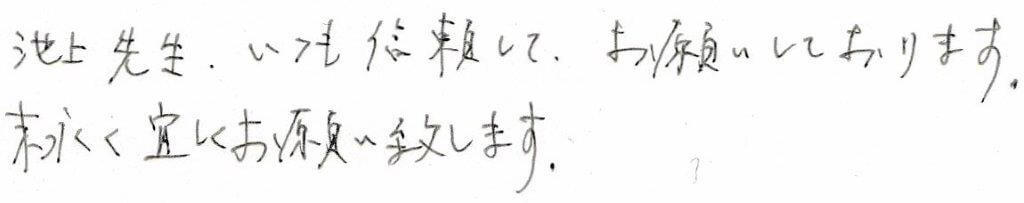 池上先生.いつも信頼して、お願いしております.
末永く宜しくお願い致します.